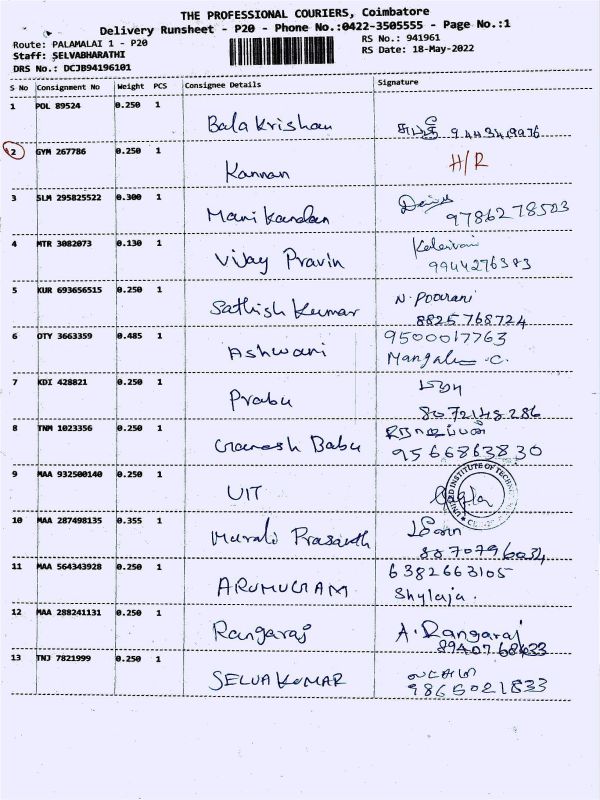 THE PROFESSIONAL COURIERS, Coimbatore
Delivery Runsheet - P20 - Phone No.:0422-3505555 - Page No.:1
Route: PALAMALAI 1 - P20
RS No.: 941961
Staff: SELVABHARATHI
RS Date: 18-May-2022
DRS No.: DCJB94196101
S No Consignment No Weight PCS Consignee Details Signature
1 POL 89524 0.250 1
Bala Krishan
2 GYM 267786 0.250 1
Kannan H/R
3 SLM 295825522 0.300 1
Mani Kandan 9786278523
4 MTR 3082073 0.130 1
Vijay Pravin Kalaivani
9944276383
5 KUR 693656515 0.250 1
Sathish Kumar N. Poorani
8825768724
6 OTY 3663359 0.485 1 9500017763
Ashwani Mangal C.
7 KDI 428821 0.250 1 பிரபு
Prabu 8072148286
8 TNM 1023356 0.250 1
Ganesh Babu 9566863830
9 MAA 932500140 0.250 1
UIT
10 MAA 287498135 0.355 1
Murali Prasanth
11 MAA 564343928 0.250 1 6382663105
ARUMUGAM Shylaja.
12 MAA 288241131 0.250 1
Rangaraj A. Rangaraj
8940768433
13 TNJ 7821999 0.250 1
SELVAKUMAR 9865021833